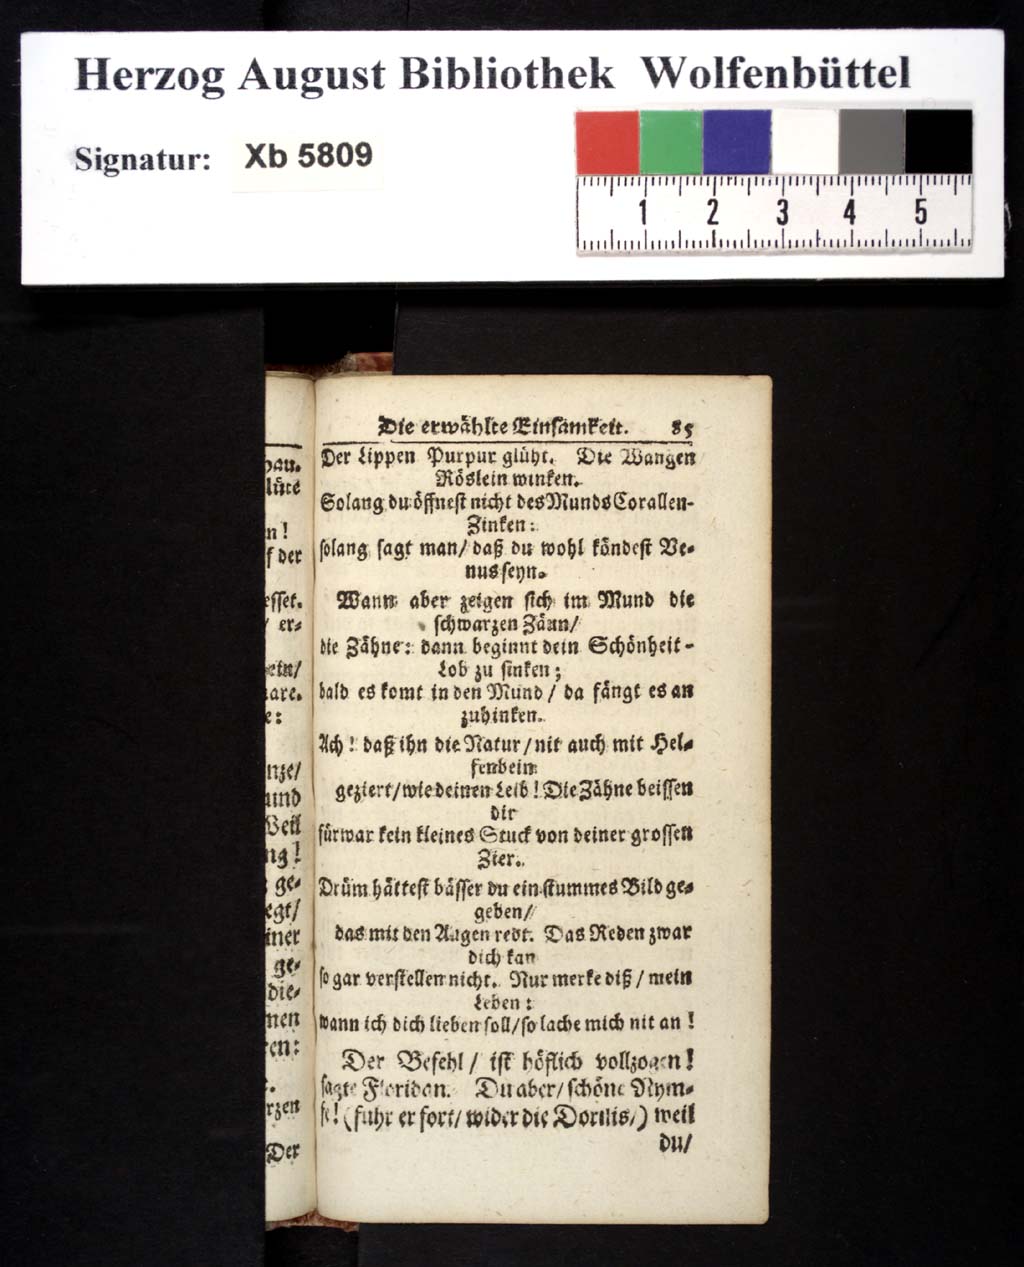 Herzog August Bibliothek Wolfenbüttel
Signatur: Xb 5809
1 2 3 4 5
Die erwählte Einsamkeit. 85
Der Lippen Purpur glüht. Die Wangen
Röslein winken.
Solang du öffnest nicht des Munds Corallen-
Zinken:
solang sagt man/ daß du wohl köndest Ve-
nus seyn.
Wann aber zeigen sich im Mund die
schwarzen Zäun/
die Zähne: dann beginnt dein Schönheit-
Lob zu sinken;
bald es komt in den Mund/ da fängt es an
zuhinken.
Ach! daß ihn die Natur/ nit auch mit Hel-
fenbein
geziert/ wie deinen Leib! Die Zähne beissen
dir
fürwar kein kleines Stuck von deiner grossen
Zier.
Drüm hättest bässer du ein stummes Bild ge-
geben/
das mit den Augen redt. Das Reden zwar
dich kan
so gar verstellen nicht. Nur merke diß/ mein
Leben:
wann ich dich lieben soll/ so lache mich nit an!
Der Befehl/ ist höflich vollzogen!
sagte Floridan. Du aber/ schöne Nym-
fe! (fuhr er fort/ wider die Dorilis/) weil
du/
hau.
lüte
n!
f der
esset.
/ er-
ein/
are.
e:
nze/
und
Weil
ng!
ge-
egt/
iner
ge-
die-
nen
en:
rzen
Der